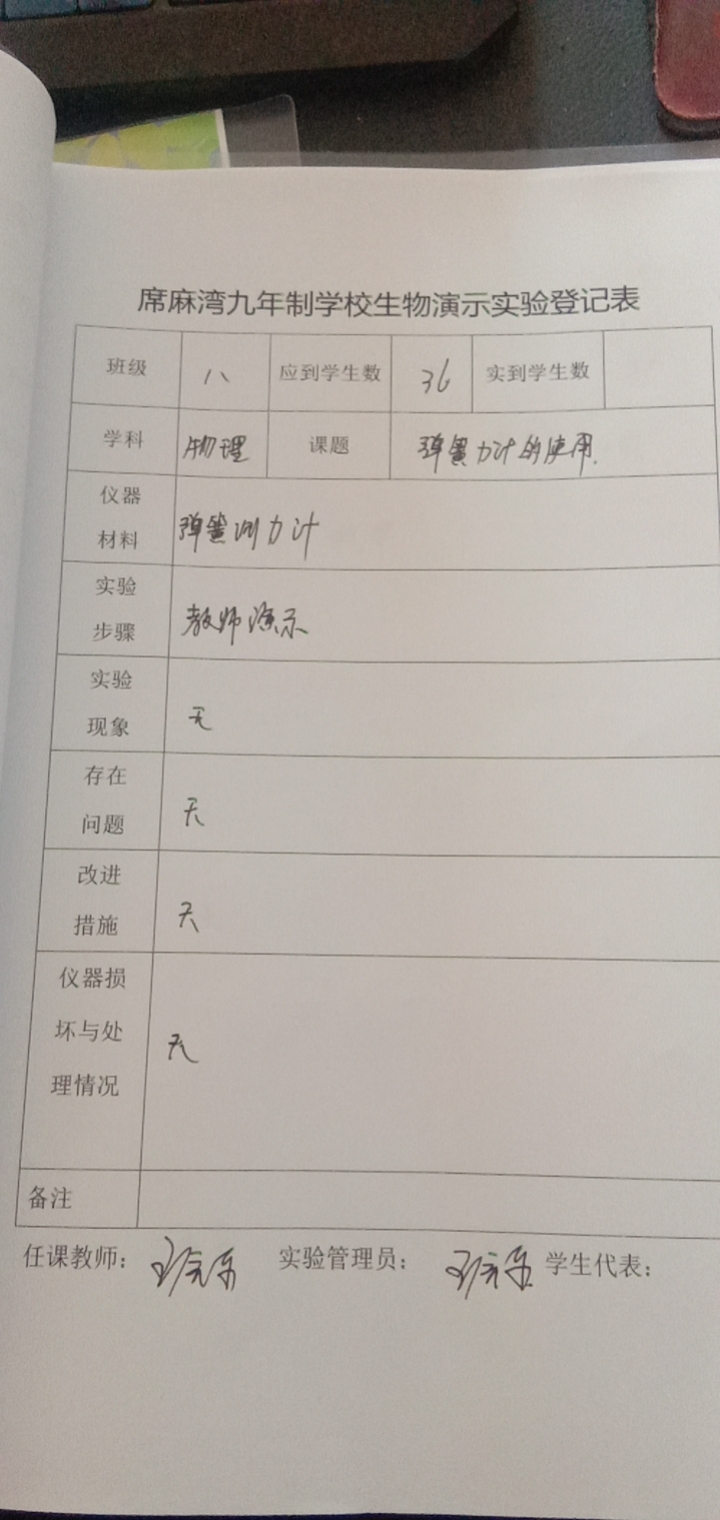 席麻湾九年制学校生物演示实验登记表
班级 八 应到学生数 36 实到学生数
学科 物理 课题 弹簧力计的使用.
仪器
材料 弹簧测力计
实验
步骤 教师演示
实验
现象 无
存在
问题 无
改进
措施 无
仪器损
坏与处
理情况 无
备注
任课教师： 实验管理员： 学生代表：